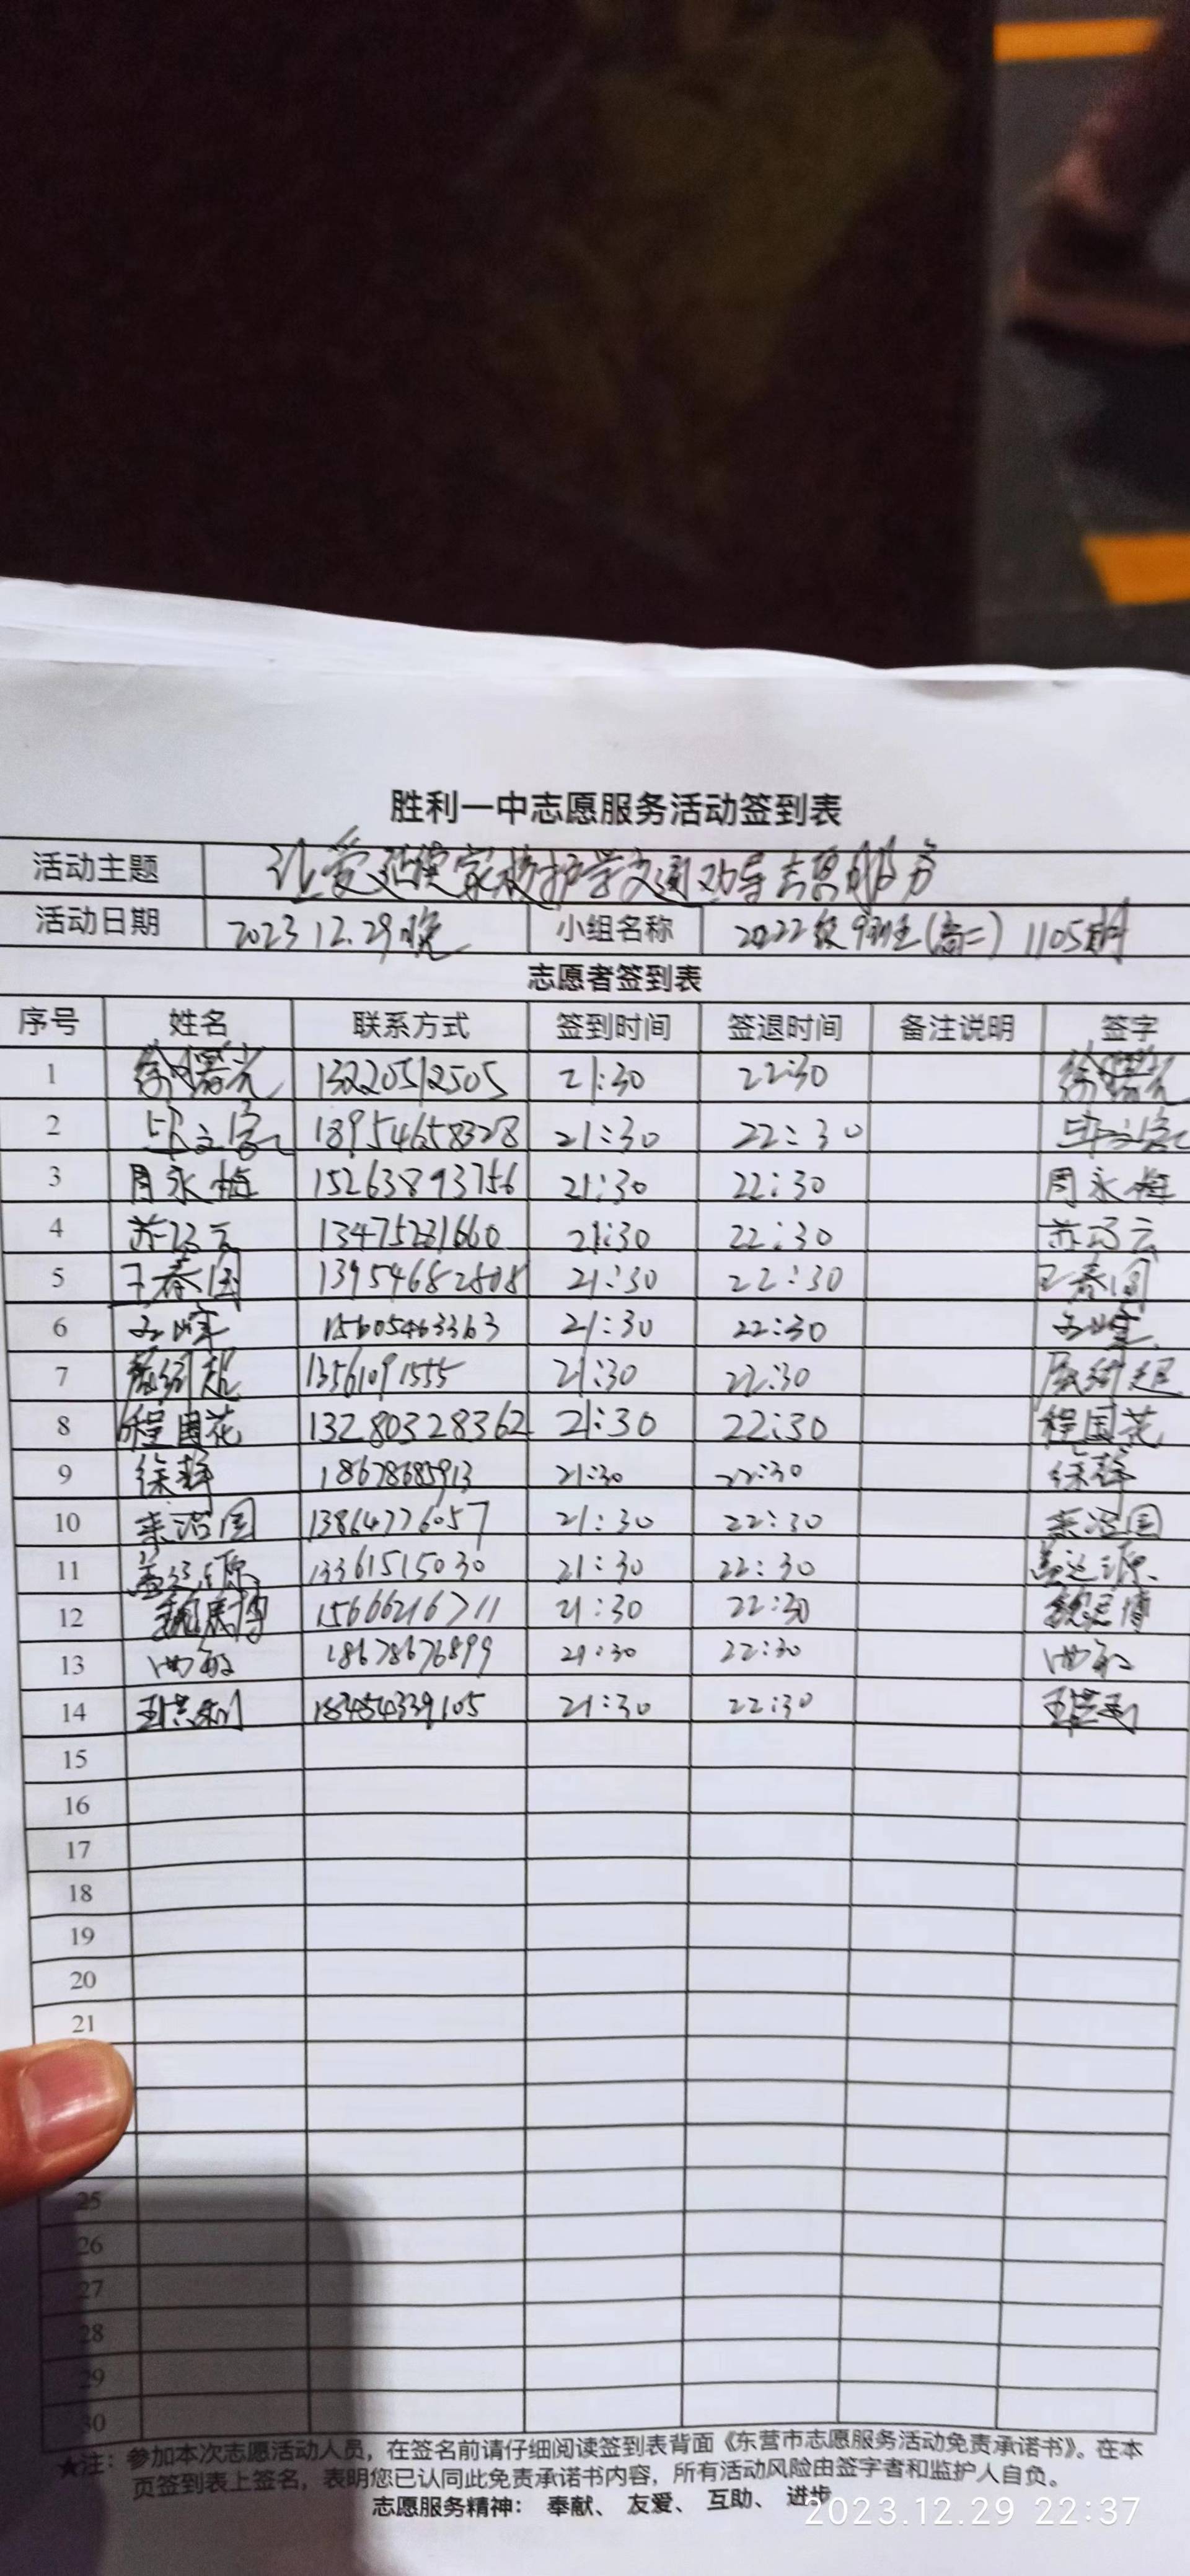 胜利一中志愿服务活动签到表
活动主题 让爱延续家校护学交通劝导志愿服务
活动日期 2023 12.29晚 小组名称 2022级9班(高二)
志愿者签到表
序号 姓名 联系方式 签到时间 签退时间 备注说明 签字
1 徐曙光 13220512505 21:30 22:30 徐曙光
2 18954658328 21:30 22:30
3 周永梅 15263893756 21:30 22:30 周永梅
4 苏巧云 13475231660 21:30 22:30 苏巧云
5 王春国 13954682808 21:30 22:30 王春国
6 15605463363 21:30 22:30
7 13561091555 21:30 22:30
8 程国花 13280328362 21:30 22:30 程国花
9 徐静 18678685913 21:30 22:30 徐静
10 13864776057 21:30 22:30
11 13361515030 21:30 22:30
12 15666216711 21:30 22:30
13 18678676899 21:30 22:30
14 183454339105 21:30 22:30
15
16
17
18
19
20
21
25
26
27
28
29
30
★注：参加本次志愿活动人员，在签名前请仔细阅读签到表背面《东营市志愿服务活动免责承诺书》。在本
页签到表上签名，表明您已认同此免责承诺书内容，所有活动风险由签字者和监护人自负。
志愿服务精神： 奉献、 友爱、 互助、 进步
2023.12.29 22:37